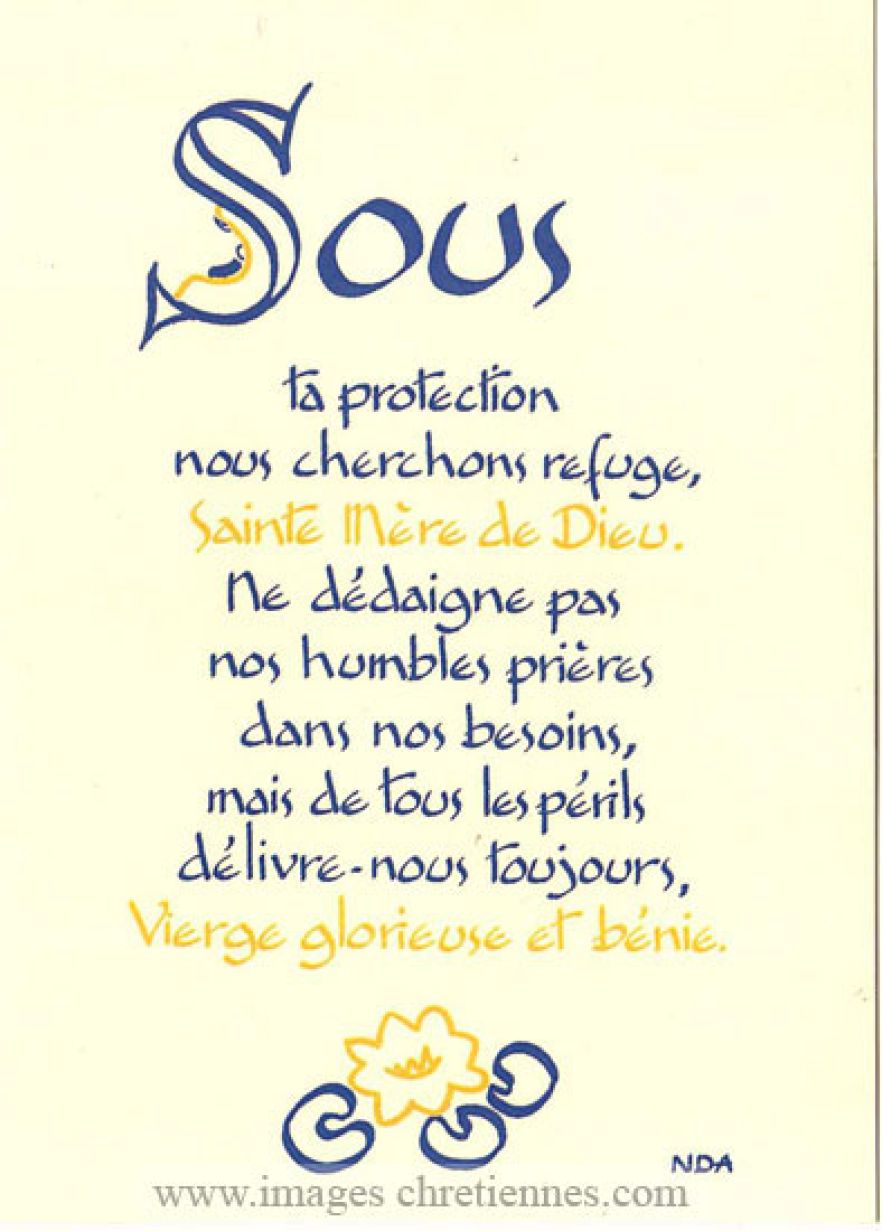 Sous
ta protection
nous cherchons refuge,
Sainte Mère de Dieu.
Ne dédaigne pas
nos humbles prières
dans nos besoins,
mais de tous les périls
délivre-nous toujours,
Vierge glorieuse et bénie.
NDA
www.images chretiennes.com